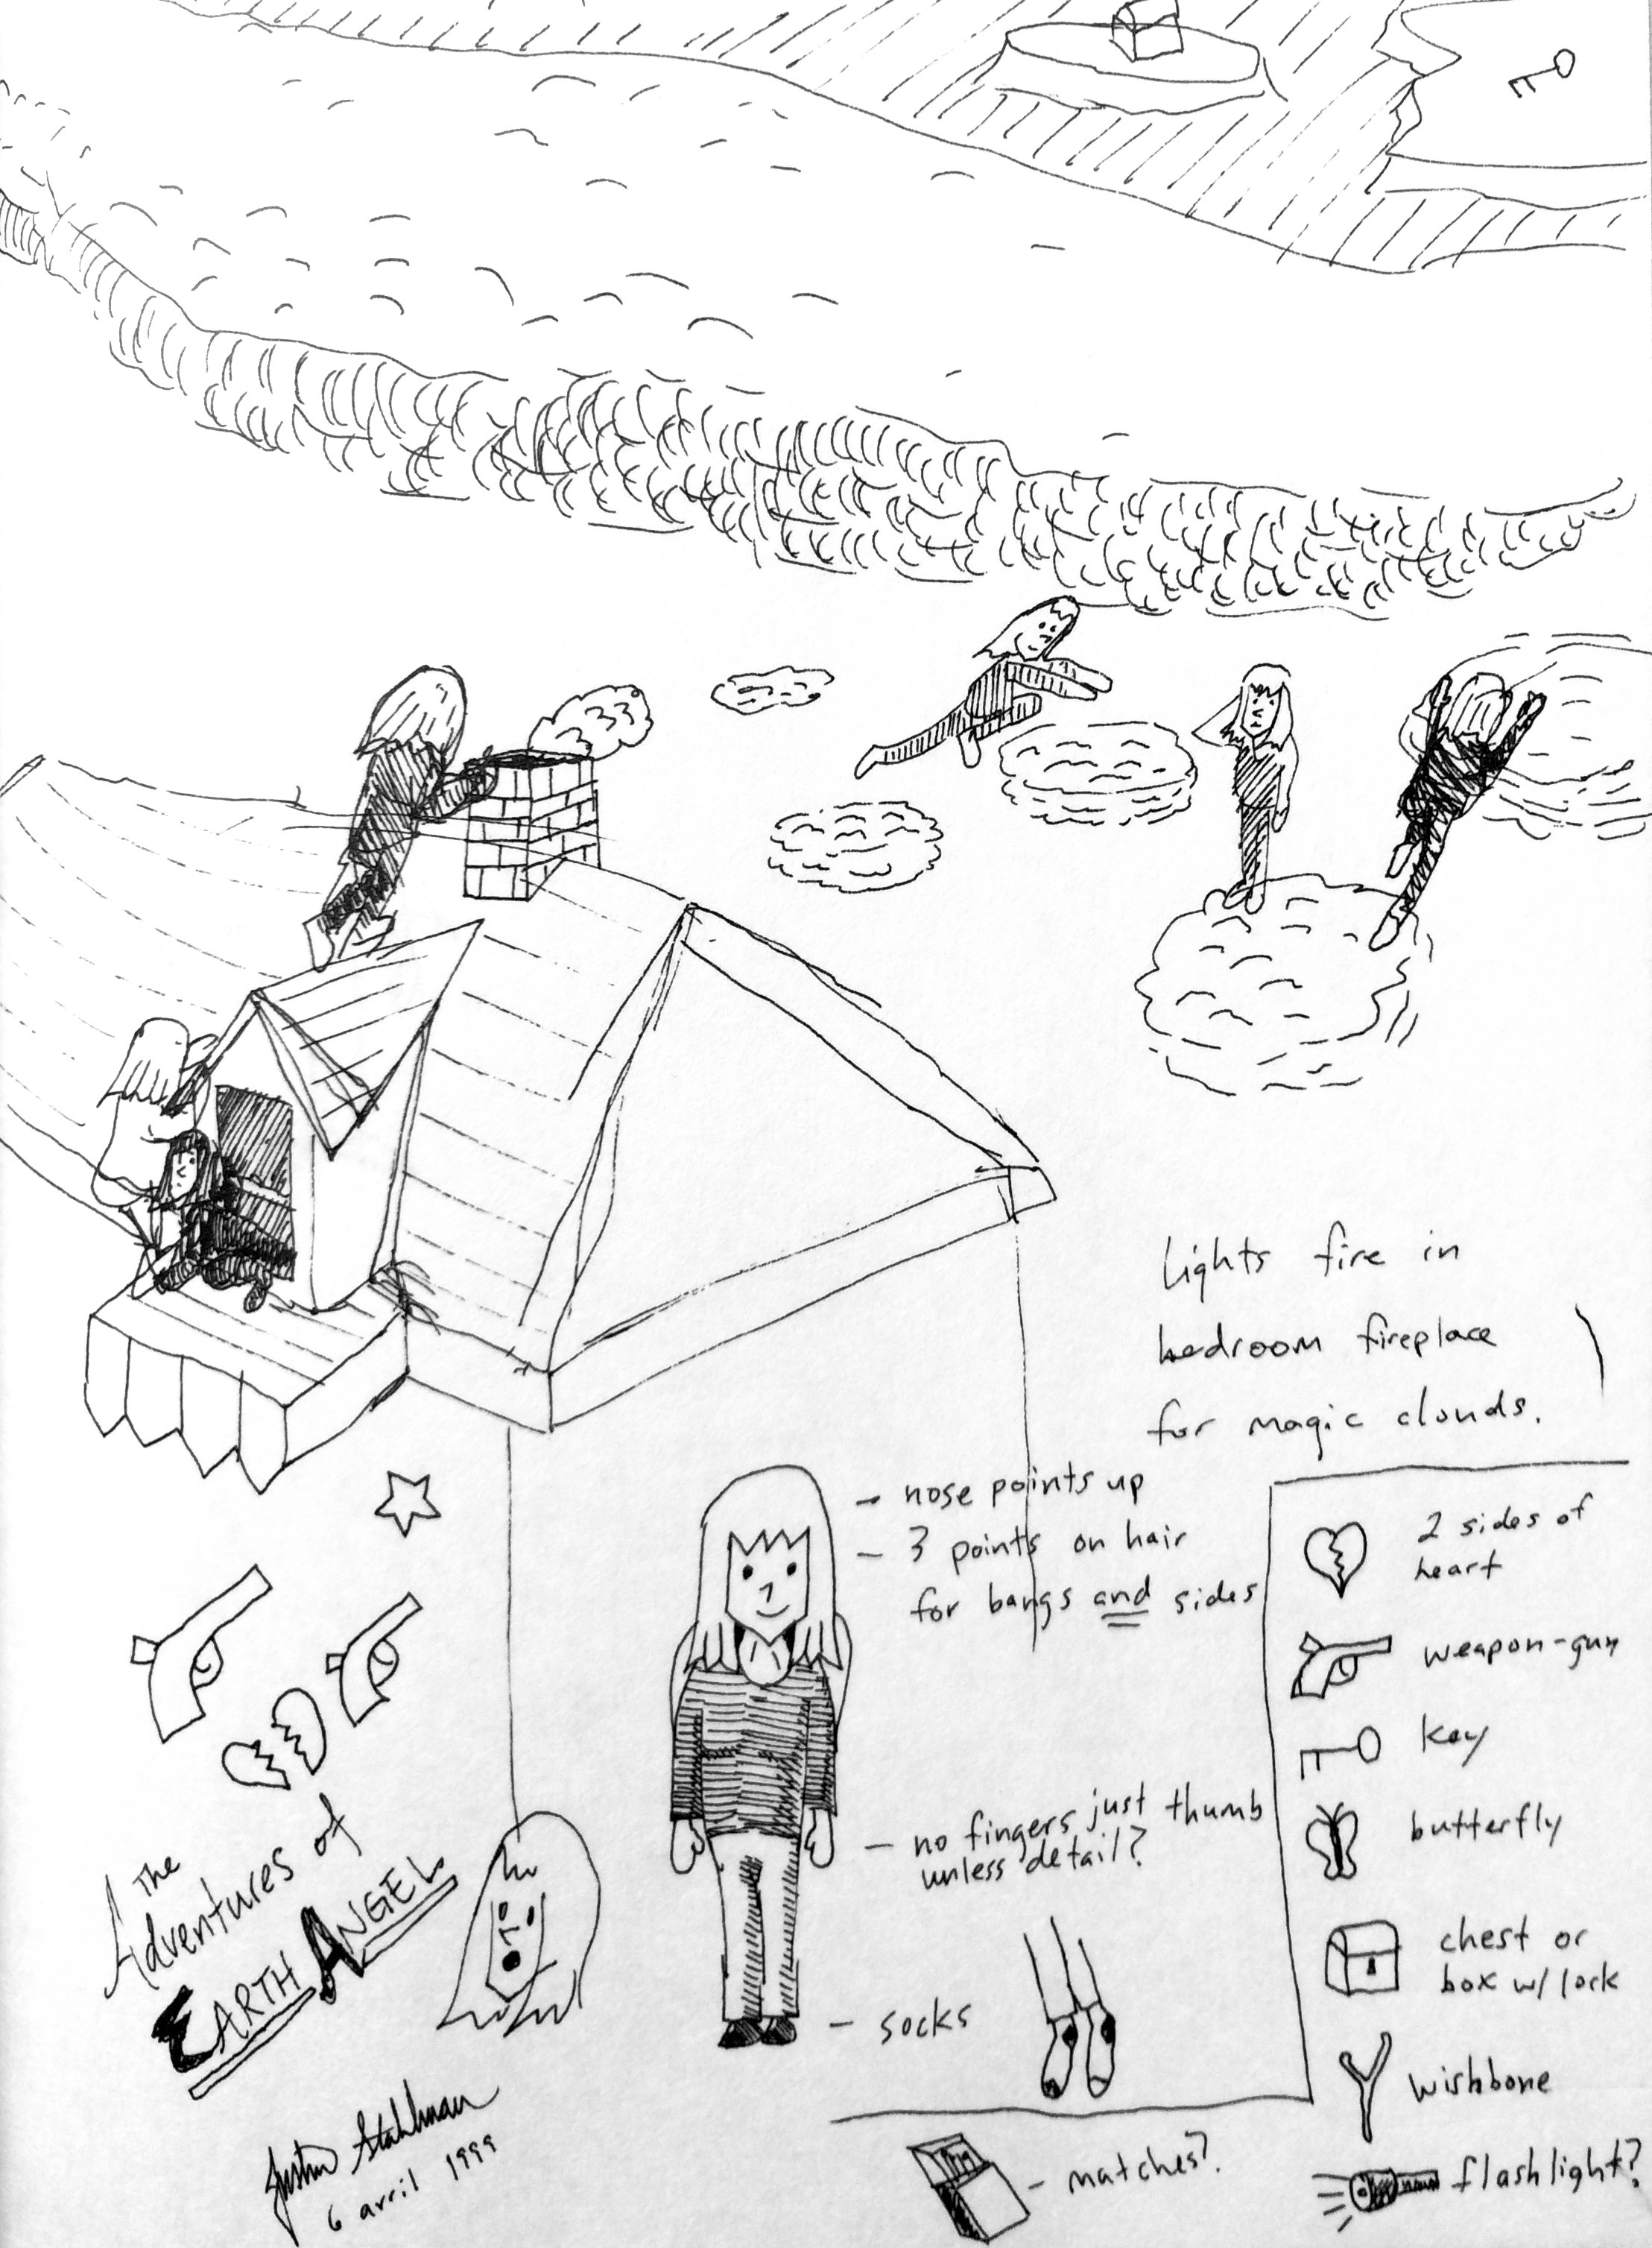 Lights fire in
bedroom fireplace
for magic clouds.
- nose points up
- 3 points on hair
for bangs and sides
- no fingers just thumb
unless detail?
- socks
2 sides of
heart
weapon-gun
key
butterfly
chest or
box w/ lock
wishbone
flashlight?
- matches?
The
Adventures of
EARTH ANGEL
Justin Stahlman
6 avril 1999